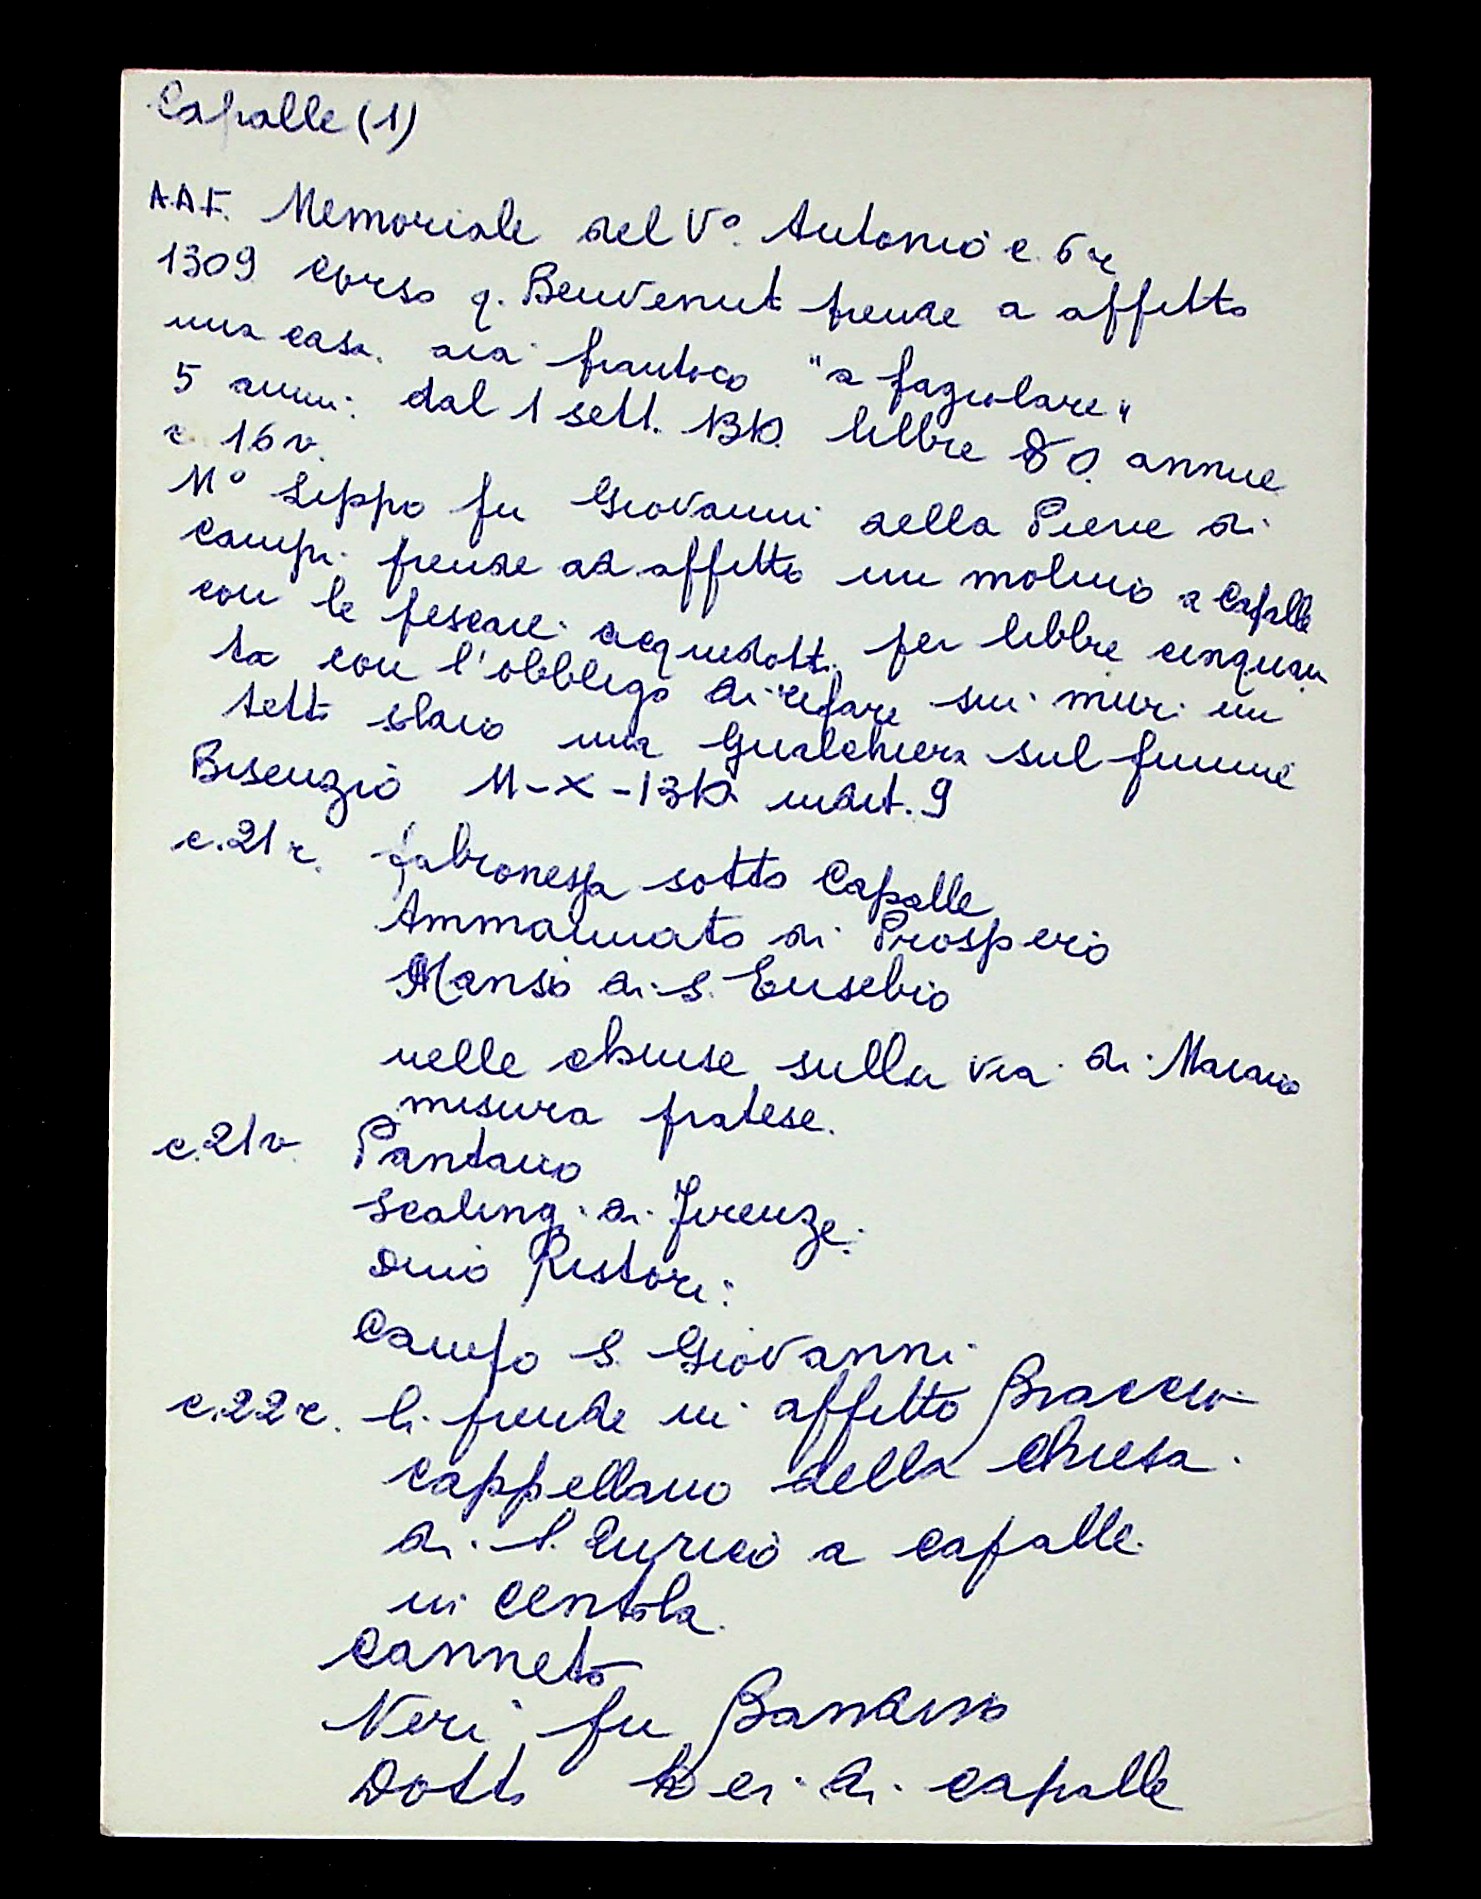 Capalle (1)
A.A.F. Memoriale del V°. Antonio c. 6 r
1309 Corso q. Benvenuti prende a affitto
una casa. aia frantoio "a fagiolare"
5 anni. dal 1 sett. 1310. libbre 80. annue
c. 16 v.
M° Lippo fu Giovanni della Pieve di
Campi prende ad affitto un molino a Capalle
con le pescaie. acquedotti. per libbre cinquan
ta con l'obbligo di rifare sui muri un
tetto una Gualchiera sul fiume
Bisenzio 11-X-1310 indit. 9
c. 21 r. sotto Capalle
Ammannato di Prospero
Manso di S. Eusebio
nelle chiuse sulla via di Macario
misura pratese.
c. 21 v. Pantano
Scalingi di Firenze.
Dino Ristori:
Campo S. Giovanni
c. 22 r. li prende in affitto Braccio
cappellano della chiesa.
di S. Quirico a Capalle.
in Centola.
Canneto
Neri fu Bandino
Dotto di Capalle